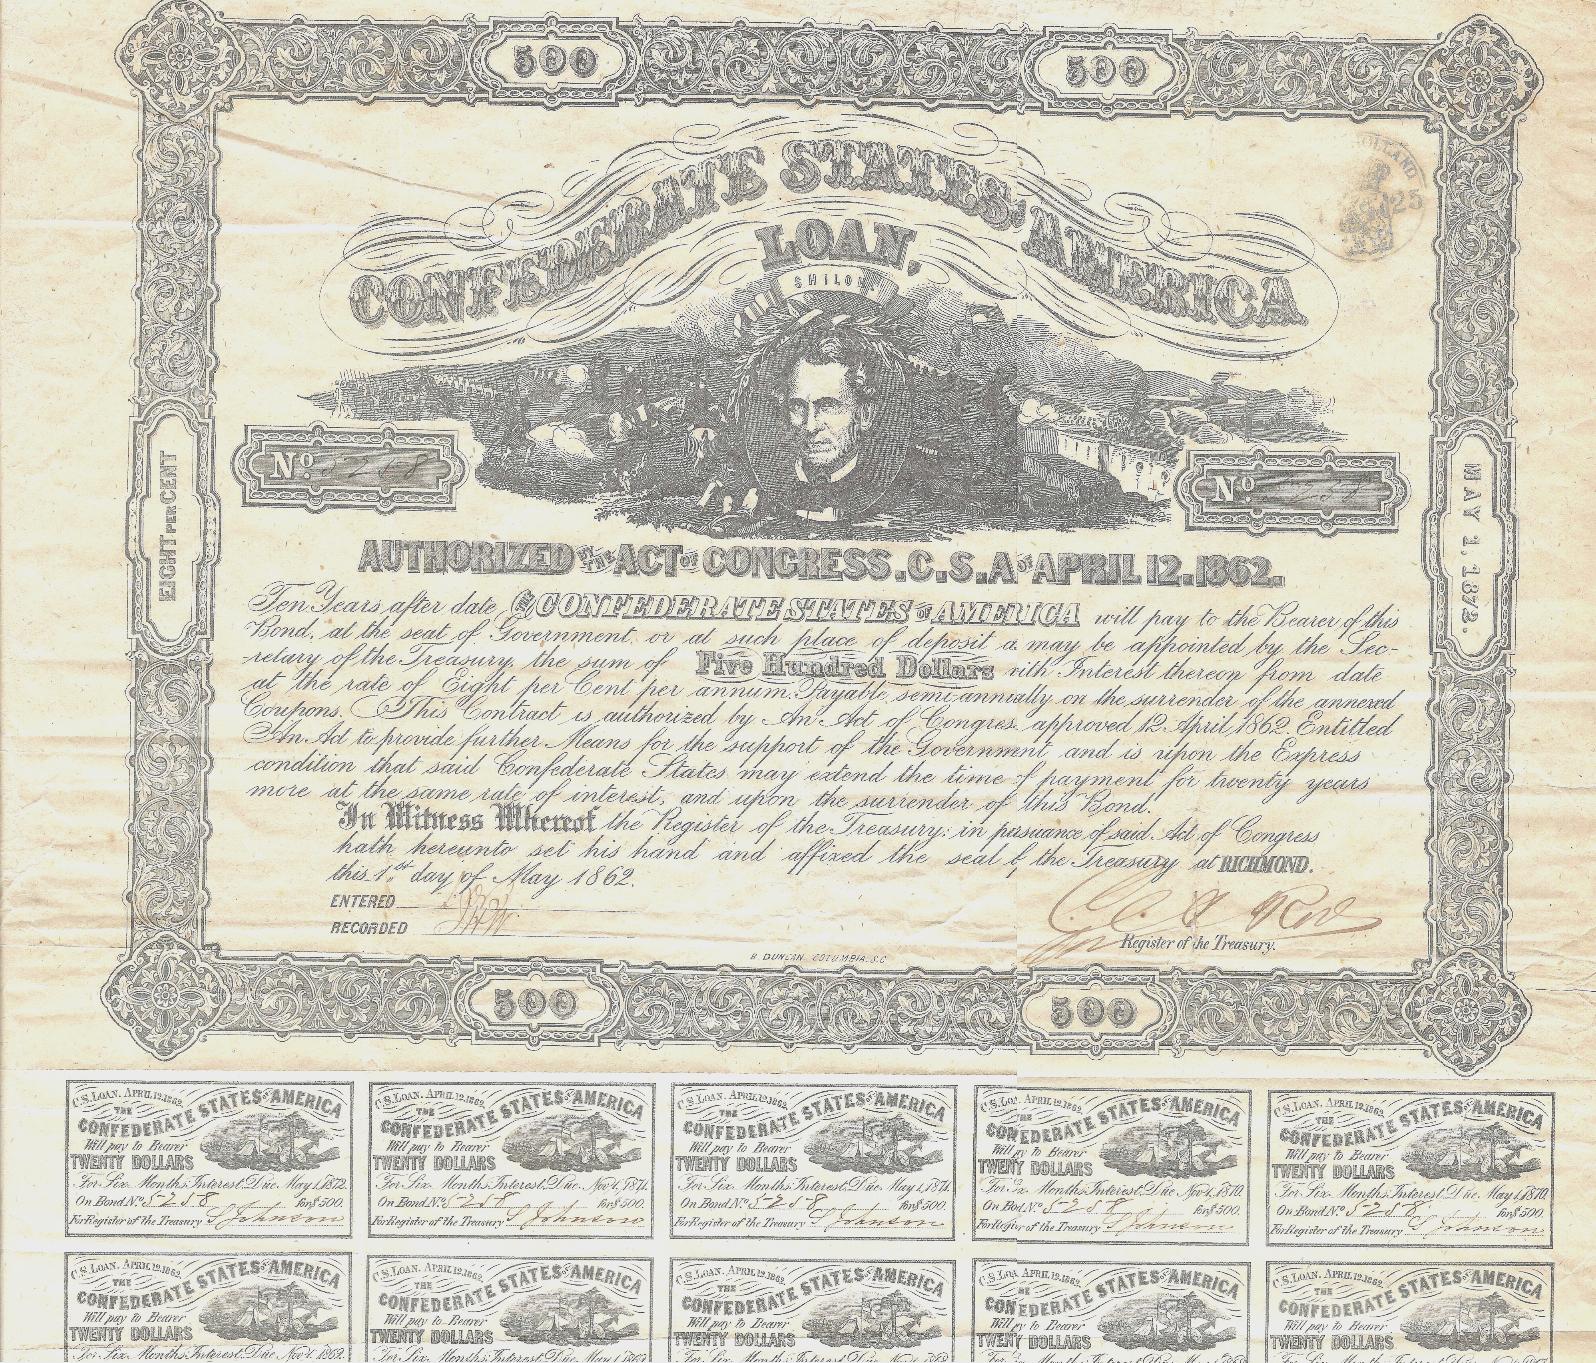 500 500
CONFEDERATE STATES OF AMERICA
LOAN,
SHILOH
HOLLAND
25
No 5258
No 5258
EIGHT PER CENT
MAY 1, 1872.
AUTHORIZED BY THE ACT OF CONGRESS. C. S. A OF APRIL 12. 1862.
Ten Years after date THE CONFEDERATE STATES OF AMERICA will pay to the Bearer of this
Bond, at the seat of Government, or at such place of deposit a. may be appointed by the Sec-
-retary of the Treasury, the sum of Five Hundred Dollars with Interest thereon from date
at the rate of Eight per Cent per annum. Payable semi-annually on the surrender of the annexed
Coupons. This Contract is authorized by An Act of Congres. approved 12 April 1862. Entitled
An Act to provide further Means for the support of the Governmnt and is upon the Express
condition that said Confederate States may extend the time of payment for twenty years
more at the same rate of interest, and upon the surrender of this Bond.
In Witness Whereof the Register of the Treasury, in pursuance of said Act of Congress
hath hereunto set his hand and affixed the seal of the Treasury at RICHMOND.
this 1st day of May 1862.
ENTERED
RECORDED
Register of the Treasury.
B DUNCAN. COLUMBIA. S.C
500 500
C.S. LOAN. APRIL 12. 1862.
THE CONFEDERATE STATES OF AMERICA
Will pay to Bearer
TWENTY DOLLARS
For Six Months Interest, Due May 1, 1872.
On Bond No. 5258 for $500.
For Register of the Treasury S Johnson
C.S. LOAN. APRIL 12. 1862.
THE CONFEDERATE STATES OF AMERICA
Will pay to Bearer
TWENTY DOLLARS
For Six Months Interest, Due Nov 1, 1871.
On Bond No. 5258 for $500.
For Register of the Treasury S Johnson
C.S. LOAN. APRIL 12. 1862.
THE CONFEDERATE STATES OF AMERICA
Will pay to Bearer
TWENTY DOLLARS
For Six Months Interest, Due May 1, 1871.
On Bond No. 5258 for $500.
For Register of the Treasury S Johnson
C.S. LOA. APRIL 12. 1862.
THE CONFEDERATE STATES OF AMERICA
Will pay to Bearer
TWENTY DOLLARS
For Six Months Interest, Due Nov 1, 1870.
On Bond No. 5258 for $500.
For Register of the Treasury S Johnson
C.S. LOAN. APRIL 12. 1862.
THE CONFEDERATE STATES OF AMERICA
Will pay to Bearer
TWENTY DOLLARS
For Six Months Interest, Due May 1, 1870.
On Bond No. 5258 for $500.
For Register of the Treasury S Johnson
C.S. LOAN. APRIL 12. 1862.
THE CONFEDERATE STATES OF AMERICA
Will pay to Bearer
TWENTY DOLLARS
For Six Months Interest, Due Nov 1, 1869.
C.S. LOAN. APRIL 12. 1862.
THE CONFEDERATE STATES OF AMERICA
Will pay to Bearer
TWENTY DOLLARS
For Six Months Interest, Due May 1, 1869.
C.S. LOAN. APRIL 12. 1862.
THE CONFEDERATE STATES OF AMERICA
Will pay to Bearer
TWENTY DOLLARS
For Six Months Interest, Due Nov 1, 1868.
C.S. LOA APRIL 12. 1862.
THE CONFEDERATE STATES OF AMERICA
Will pay to Bearer
TWENTY DOLLARS
Months Interest, Due May 1, 1868.
C.S. LOAN. APRIL 12. 1862.
THE CONFEDERATE STATES OF AMERICA
Will pay to Bearer
TWENTY DOLLARS
For Six Months Interest, Due Nov 1,